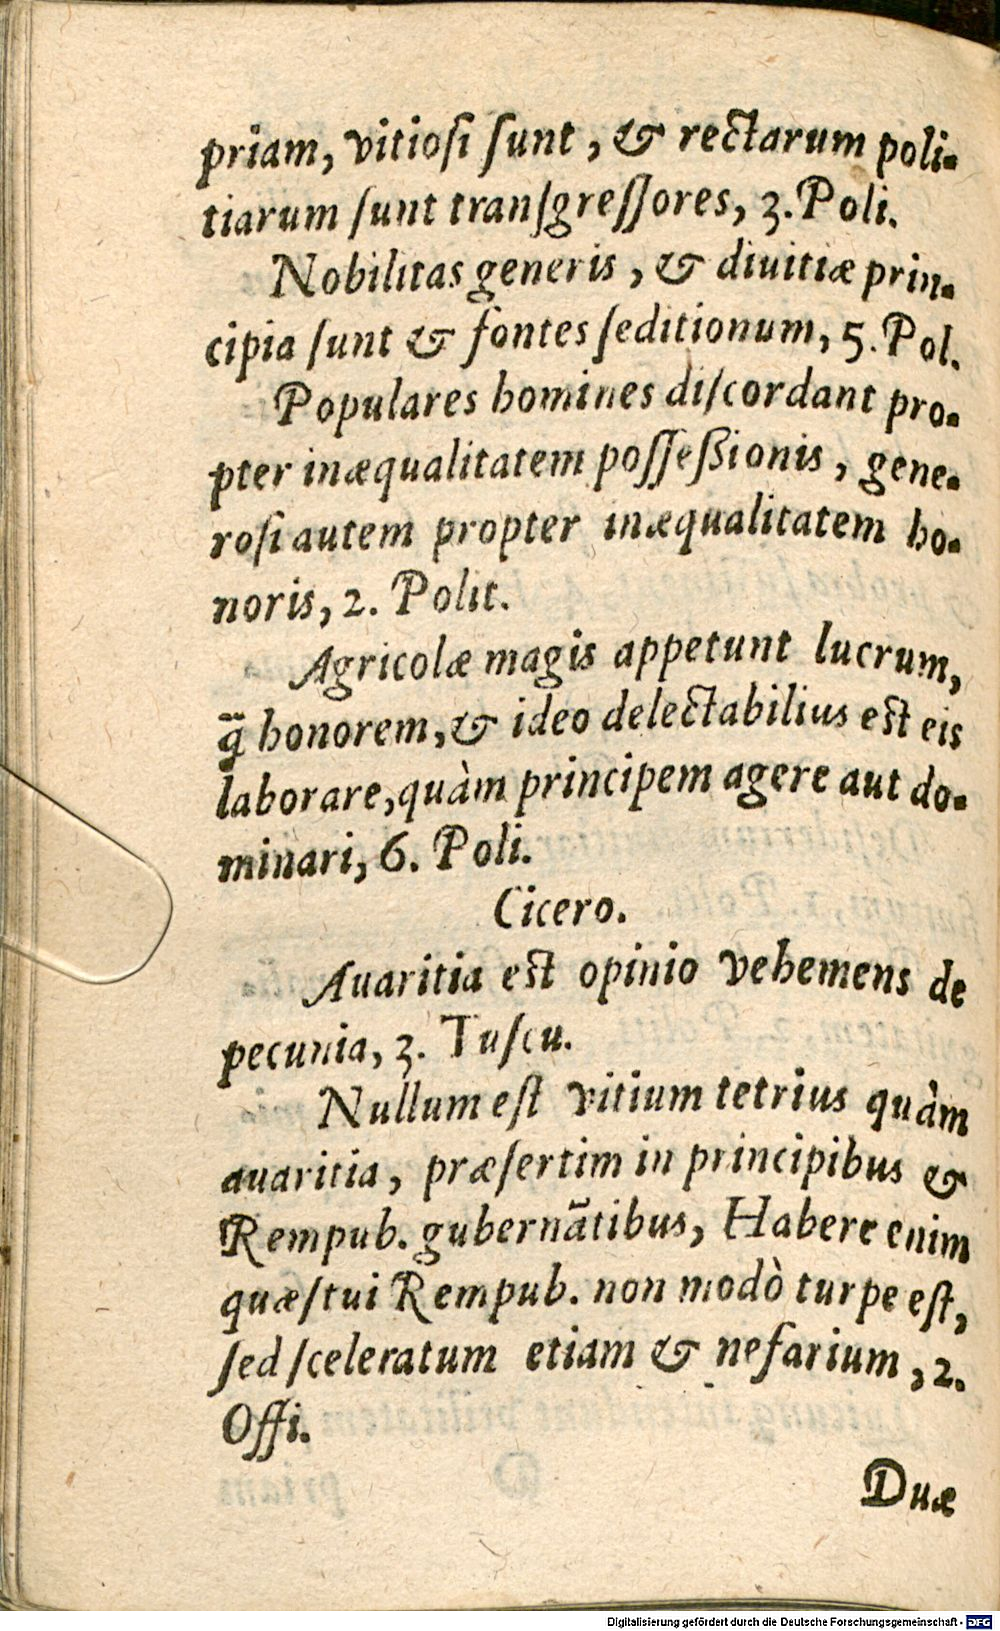 priam, vitioſi ſunt, & rectarum poli-
tiarum ſunt tranſgreſſores, 3. Poli.
Nobilitas generis, & diuitiæ prin-
cipia ſunt & fontes ſeditionum, 5. Pol.
Populares homines diſcordant pro-
pter inæqualitatem poſſeßionis, gene-
roſi autem propter inæqualitatem ho-
noris, 2. Polit.
Agricolæ magis appetunt lucrum,
q̃ honorem, & ideo delectabilius eſt eis
laborare, quàm principem agere aut do-
minari, 6. Poli.
Cicero.
Auaritia eſt opinio vehemens de
pecunia, 3. Tuſcu.
Nullum eſt vitium tetrius quàm
auaritia, præſertim in principibus &
Rempub. gubernãtibus, Habere enim
quæſtui Rempub. non modò turpe eſt,
ſed ſceleratum etiam & nefarium, 2.
Offi.
Duæ
Digitalisierung gefördert durch die Deutsche Forschungsgemeinschaft - DFG